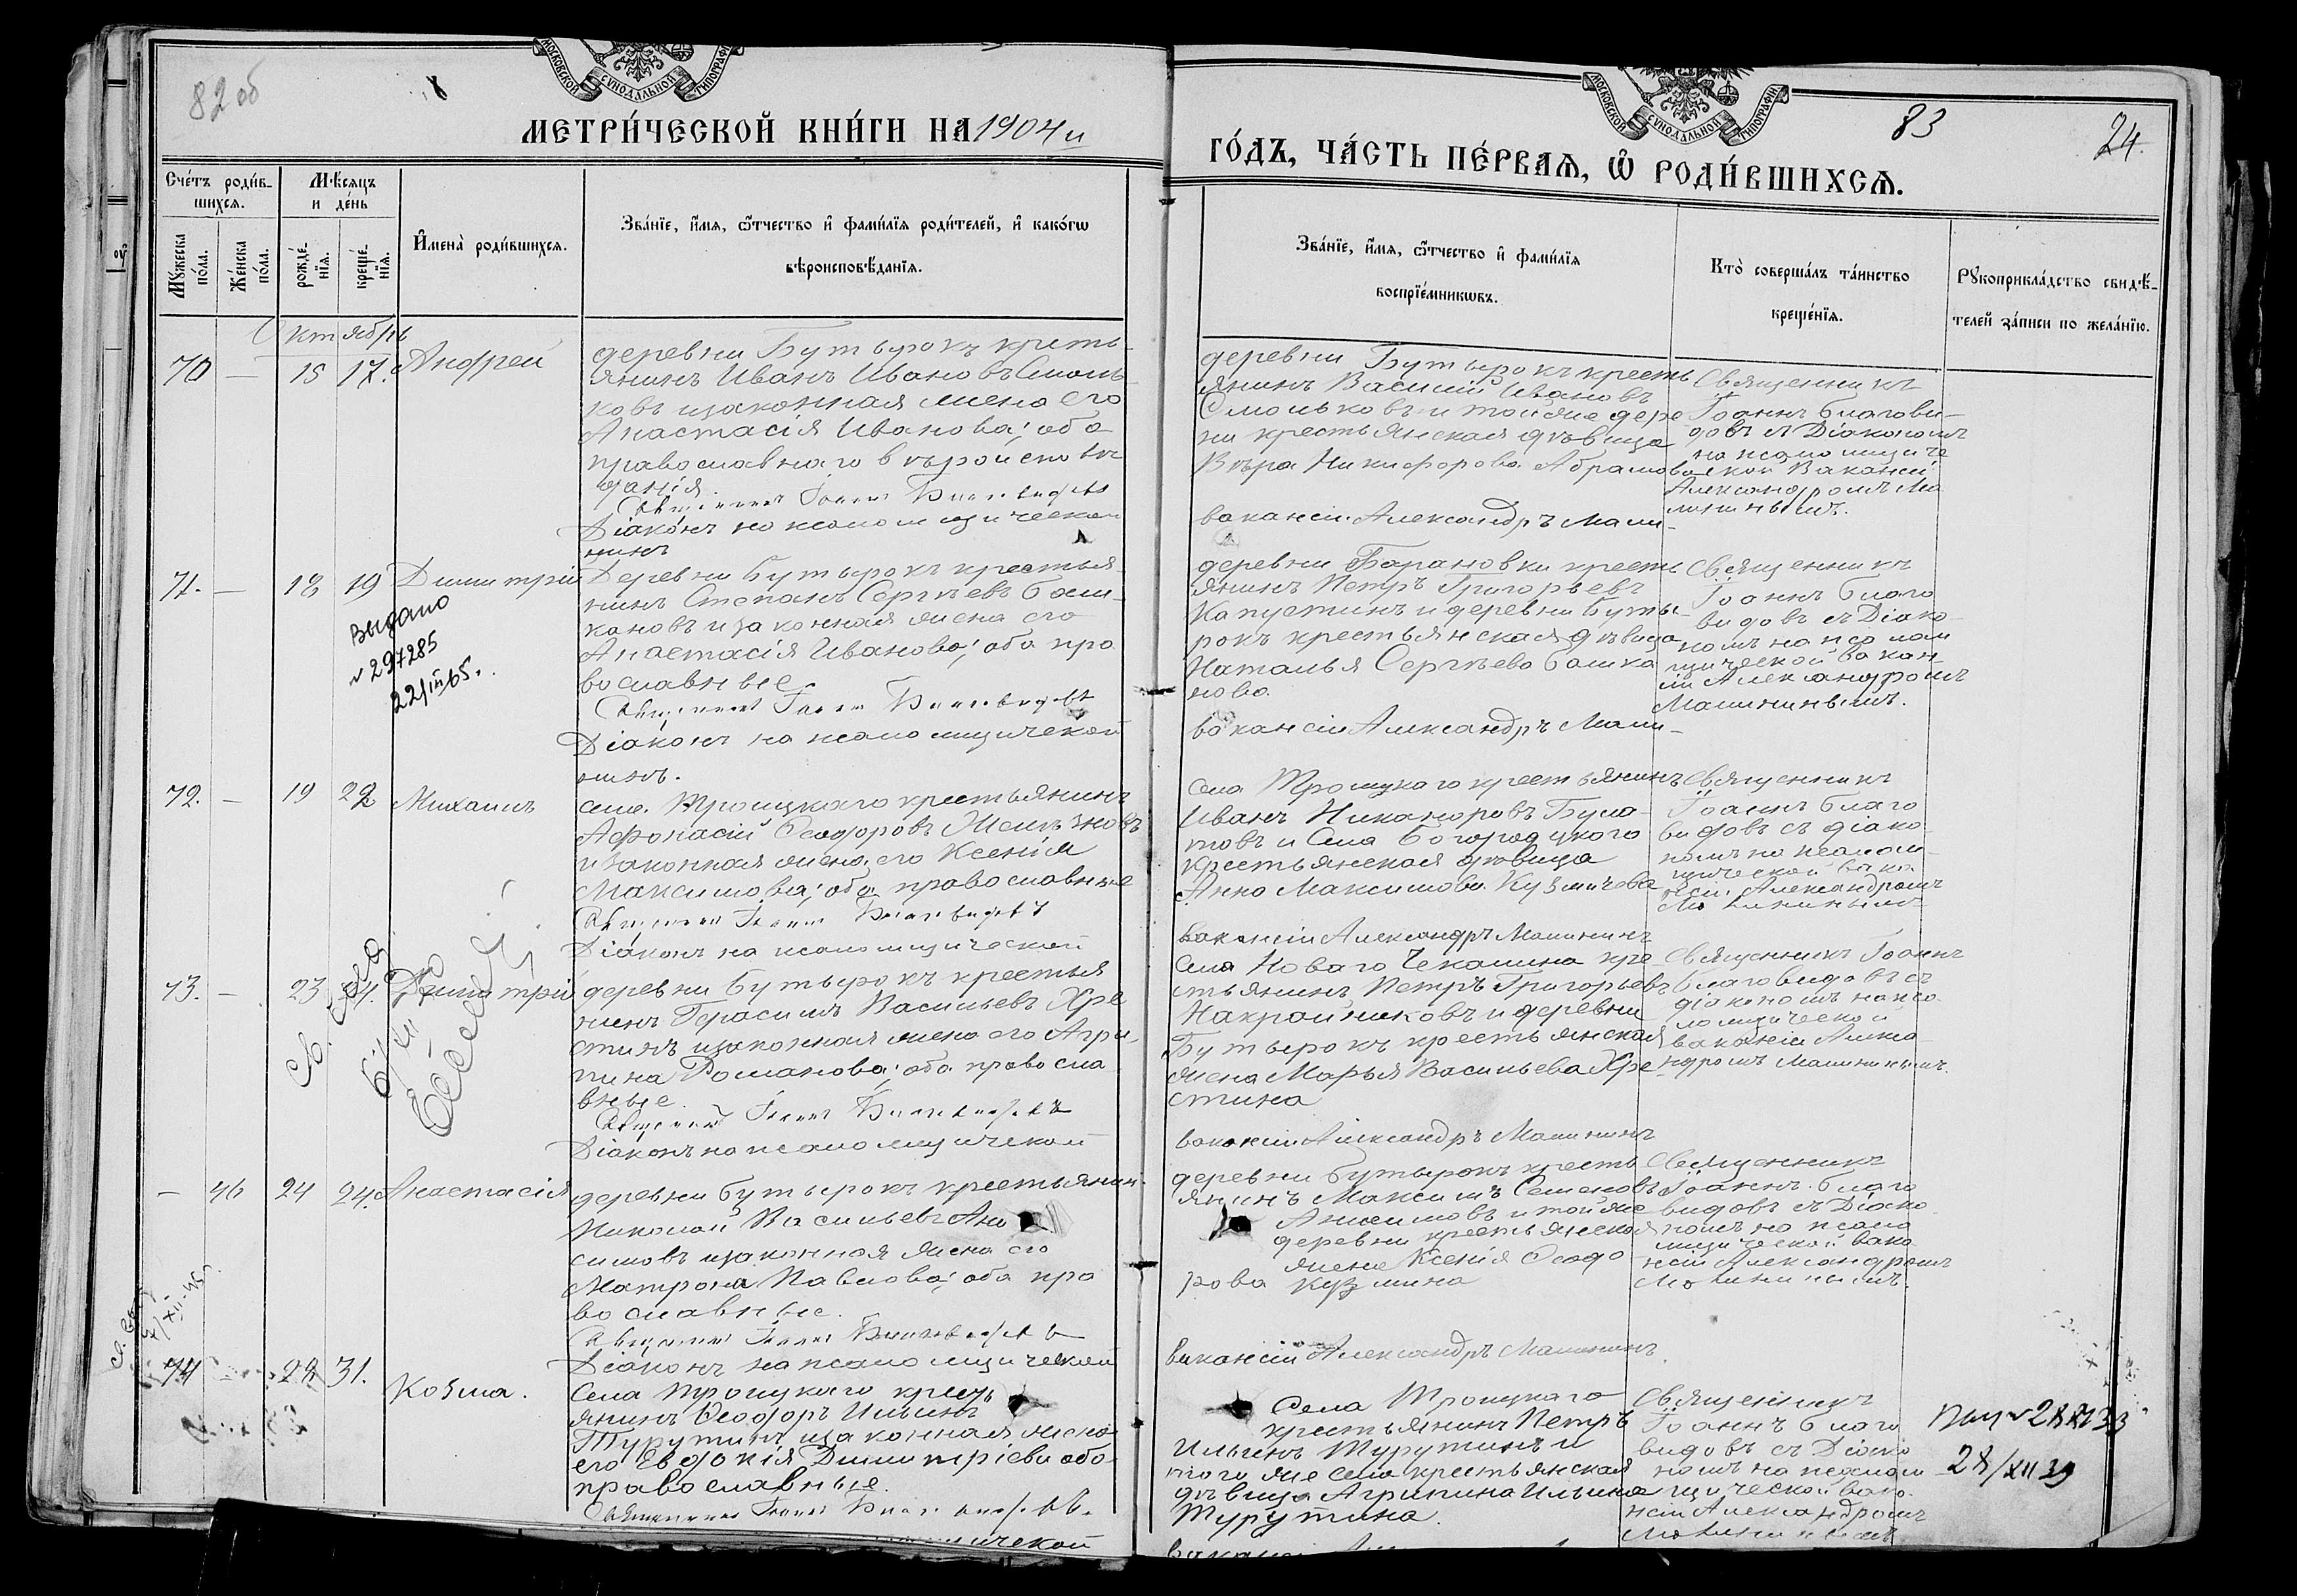 82 об
МОСКОВСКОЙ СѴНОДАЛЬНОЙ ТИПОГРАФІИ
МЕТРИ́ЧЕСКОЙ КНИ́ГИ НА 1904й
Сче́тъ роди́в-
шихсѧ.
Мѣ́сѧцъ
и де́нь
И҆мена̀ роди́вшихсѧ.
Зва́нїе, и҆́мѧ, ѻ҆́тчество и҆ фами́лїѧ роди́телей, и҆ како́гѡ
вѣроисповѣ́данїѧ.
Мꙋ́жеска
по́ла.
Же́нска
по́ла.
рожде́-
нїѧ.
креще́-
нїѧ.
Октябрь
70 — 15 17. Андрей
деревни Бутырокъ кресть-
янинъ Иванъ Ивановъ Смоль-
ковъ и законная жена его
Анастасія Иванова; оба
православнаго вѣроисповѣ
данія.
Священникъ Іоаннъ Благовидовъ
Діаконъ на псаломщической
нинъ
71. — 18 19 Димитрій
Деревни Бутырокъ крестья-
нинъ Степанъ Сергѣевъ Баш-
кановъ и законная жена его
Анастасія Иванова; оба пра
вославные
Священникъ Іоаннъ Благовидовъ
Діаконъ на псаломщической
нинъ.
Выдано
№ 297285
22/III 65.
72. — 19 22 Михаилъ
Села Троицкаго крестьянинъ
Афонасій Ѳеодоровъ Желѣзновъ
и законная жена его Ксенія
Максимова; оба православные
Священникъ Іоаннъ Благовидовъ
Діаконъ на псаломщической
73. — 23 24. Димитрій
деревни Бутырокъ крестья
нинъ Герасимъ Васильевъ Хре
стинъ и законная жена его Агри-
пина Романова; оба правосла
вные.
Священникъ Іоаннъ Благовидовъ
Діаконъ на псаломщической
— 46 24 24. Анастасія
деревни Бутырокъ крестьянин
Николай Васильевъ Ани
симовъ и законная жена его
Матрона Павлова; оба пра
вославные.
Священникъ Іоаннъ Благовидовъ
Діаконъ на псаломщической
74 — 28 31. Козма.
Села Троицкаго кресть
янинъ Ѳеодоръ Ильинъ
Турутинъ и законная жена
его Евдокія Димитріева оба
православные.
Священникъ Іоаннъ Благовидовъ.
83
24.
МОСКОВСКОЙ СѴНОДАЛЬНОЙ ТИПОГРАФІИ
ГО́ДЪ, ЧА́СТЬ ПЕ́РВАѦ, Ѡ҆ РОДИ́ВШИХСѦ.
Зва́нїе, и҆́мѧ, ѻ҆́тчество и҆ фами́лїѧ
воспрїе́мникѡвъ.
Кто̀ соверша́лъ та́инство
креще́нїѧ.
Рꙋкоприкла́дство свидѣ́-
телей за́писи по жела́нїю.
деревни Бутырокъ кресть
янинъ Василій Ивановъ
Смольковъ и той же дере
ни крестьянская дѣвица
Вѣра Никифорова Абрамова
вакансіи Александръ Мали-
Священникъ
Іоаннъ Благови-
довъ съ Діакономъ
на псаломщиче
ской Вакансіи
Александромъ Ма
лининымъ.
деревни Барановки кресть
янинъ Петръ Григорьевъ
Капустинъ и деревни Буты-
рокъ крестьянская дѣвица
Наталья Сергѣева Башка
нова.
вакансіи Александръ Мали-
Священникъ
Іоаннъ Благо
видовъ съ Діако-
номъ на псалом
щической вакан-
сіи Александромъ
Малининымъ.
Села Троицкаго крестьянинъ
Иванъ Никаноровъ Була-
товъ и Села Богородцкого
крестьянская дѣвица
Анна Максимова Кузмичева
вакансіи Александръ Малининъ
Священникъ
Іоаннъ Благо
видовъ съ діако
номъ на псалом-
щической вака
нсіи Александромъ
Малининымъ
Села Новаго Чекалина кре-
стьянинъ Петръ Григорьевъ
Накрайниковъ и деревни
Бутырокъ крестьянская
жена Марья Васильева Хре-
стина
вакансіи Александръ Малининъ
Священникъ Іоаннъ
Благовидовъ съ
діакономъ на пса
ломщической
вакансіи Алекса
ндромъ Малининымъ.
деревни Бутырокъ кресть
янинъ Максимъ Семеновъ
Анисимовъ и той же
деревни крестьянская
жена Ксенія Ѳеодо
рова Кузмина
вакансіи Александръ Малининъ
Священникъ
Іоаннъ Благо
видовъ съ Діако
номъ на псало
мщической вака
нсіи Александромъ
Малининымъ.
Села Троицкаго
крестьянинъ Петръ
Ильинъ Турутинъ и
того же села крестьянская
дѣвица Агрипина Ильина
Турутина.
Священникъ
Іоаннъ Благо
видовъ съ Діако
номъ на псалом-
щической вака-
нсіи Александромъ
Малининымъ
28/XII 39